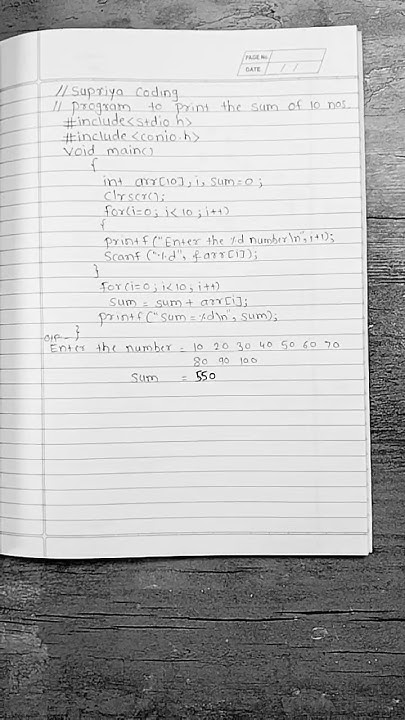 PAGE No.
DATE / /
// Supriya Coding
// program to print the sum of 10 nos.
#include<stdio.h>
#include <conio.h>
Void main()
{
int arr[10], i, sum=0;
Clrscr();
for(i=0; i<10; i++)
{
printf("Enter the %d number\n", i+1);
Scanf("%d", &arr[i]);
}
for(i=0; i<10; i++)
sum = sum + arr[i];
printf("Sum = %d\n", sum);
}
O/P -
Enter the number = 10 20 30 40 50 60 70
80 90 100
Sum = 550